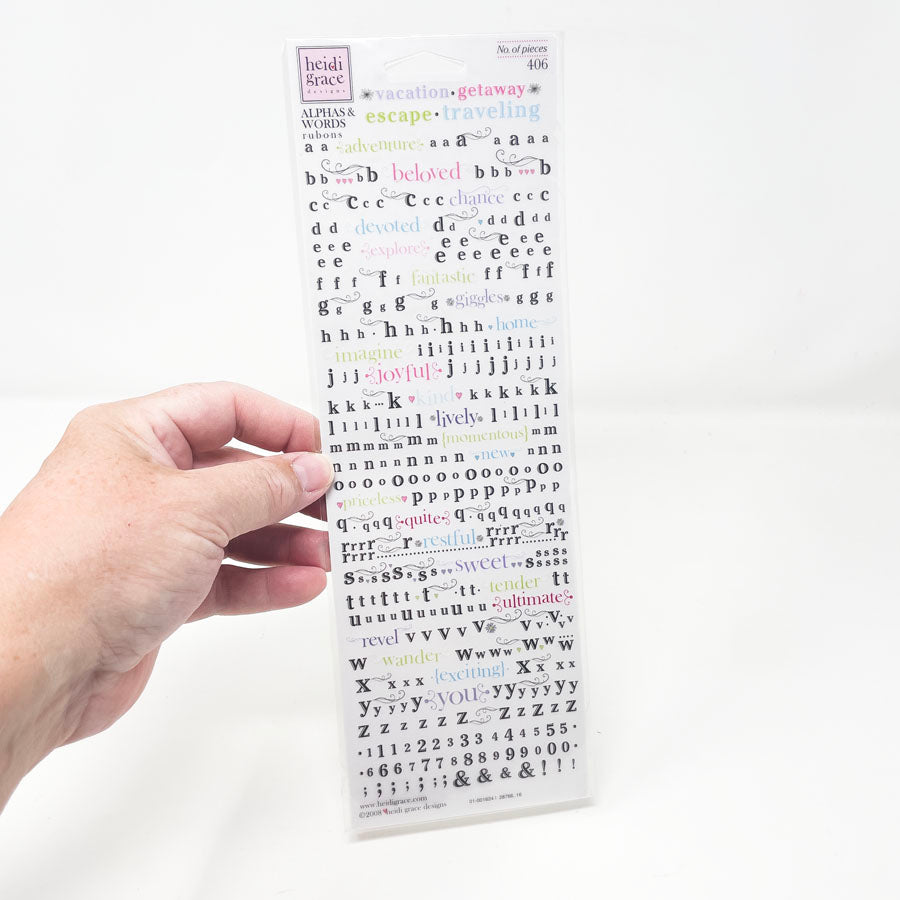 heidi
grace
designs
No. of pieces
406
ALPHAS &
WORDS
rubons
vacation • getaway
escape • traveling
a a adventure a a a a a a a
b b b b beloved b b b b
c c c c c c c c chance c c c
devoted d d d d d d
e e e explore e e e e e
e e e e e e e e e
f f f f f fantastic f f f f
g g g g g g giggles g g g
h h h h h h h h h home
imagine i i i i i i i i i i i
j j j joyful j j j j j j j j
k k k k kind k k k k k k
l l l l l l l lively l l l l l
m m m m m m m {momentous} m m
n n n n n n n n n new n n
o o o o o o o o o o o o o o
priceless p p p p p p p p p p
q q q q quite q q q q q q q q
r r r r r restful r r r r r r r r
r r r r r r r r
s s s s s s s s sweet s s s s
s s s s s
t t t t t t t t t tender t t
u u u u u u u u u u ultimate
revel v v v v v v v v v
w wander w w w w w w w
x x x x {exciting} x x x x
y y y y y you y y y y y y y
z z z z z z z z z z z z
1 1 1 2 2 2 3 3 3 4 4 4 5 5 5
6 6 6 7 7 7 8 8 8 9 9 9 0 0 0
; ; ; ; ; ; ; & & & & ! ! !
www.heidigrace.com
©2008 heidi grace designs